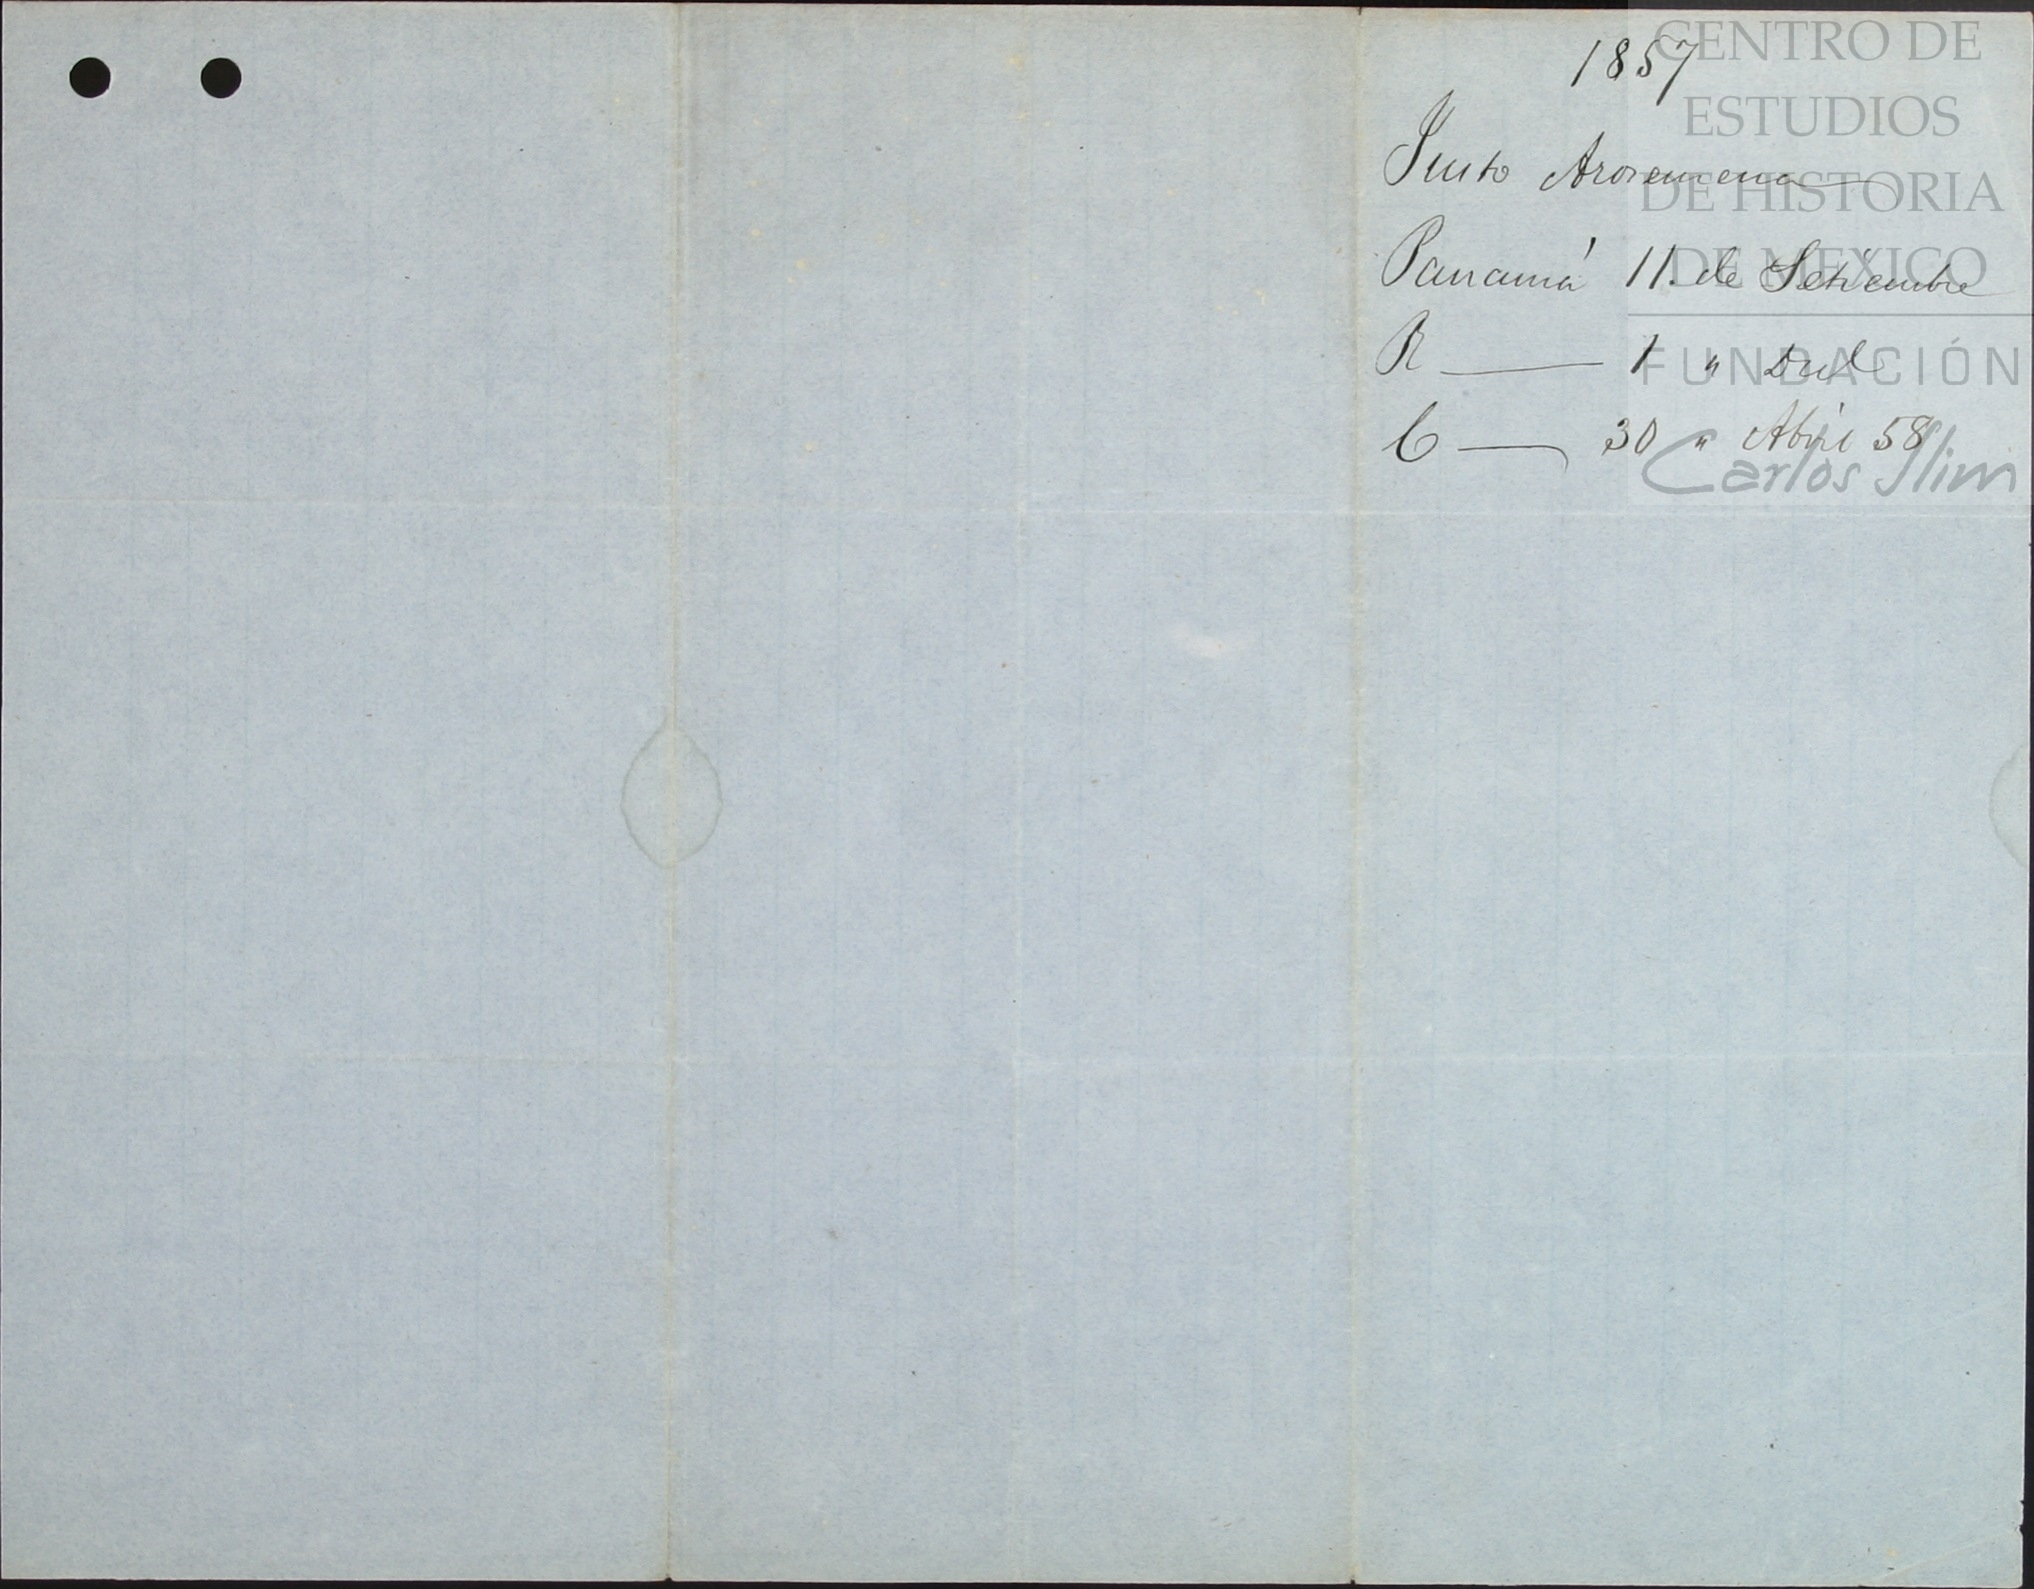 1857
Justo Arosemena
Panamá 11. de Setiembre
R —— 1 " Dic
C —— 30 " Abril 58
CENTRO DE
ESTUDIOS
DE HISTORIA
DE MEXICO
FUNDACIÓN
Carlos Slim